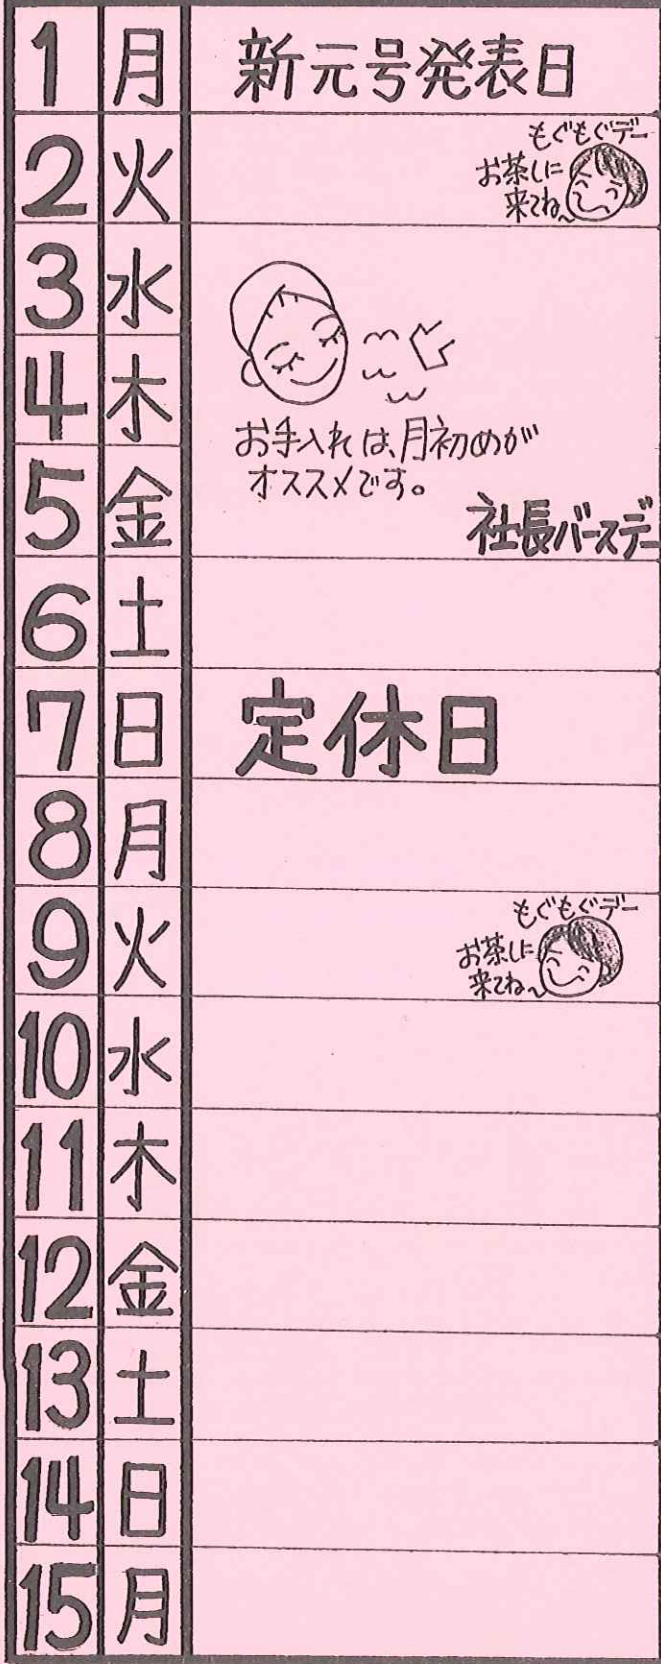 1 月 新元号発表日
2 火 もぐもぐデー
お茶しに
来てね〜
3 水
4 木
お手入れは、月初めが
オススメです。
5 金 社長バースデー
6 土
7 日 定休日
8 月
9 火 もぐもぐデー
お茶しに
来てね〜
10 水
11 木
12 金
13 土
14 日
15 月